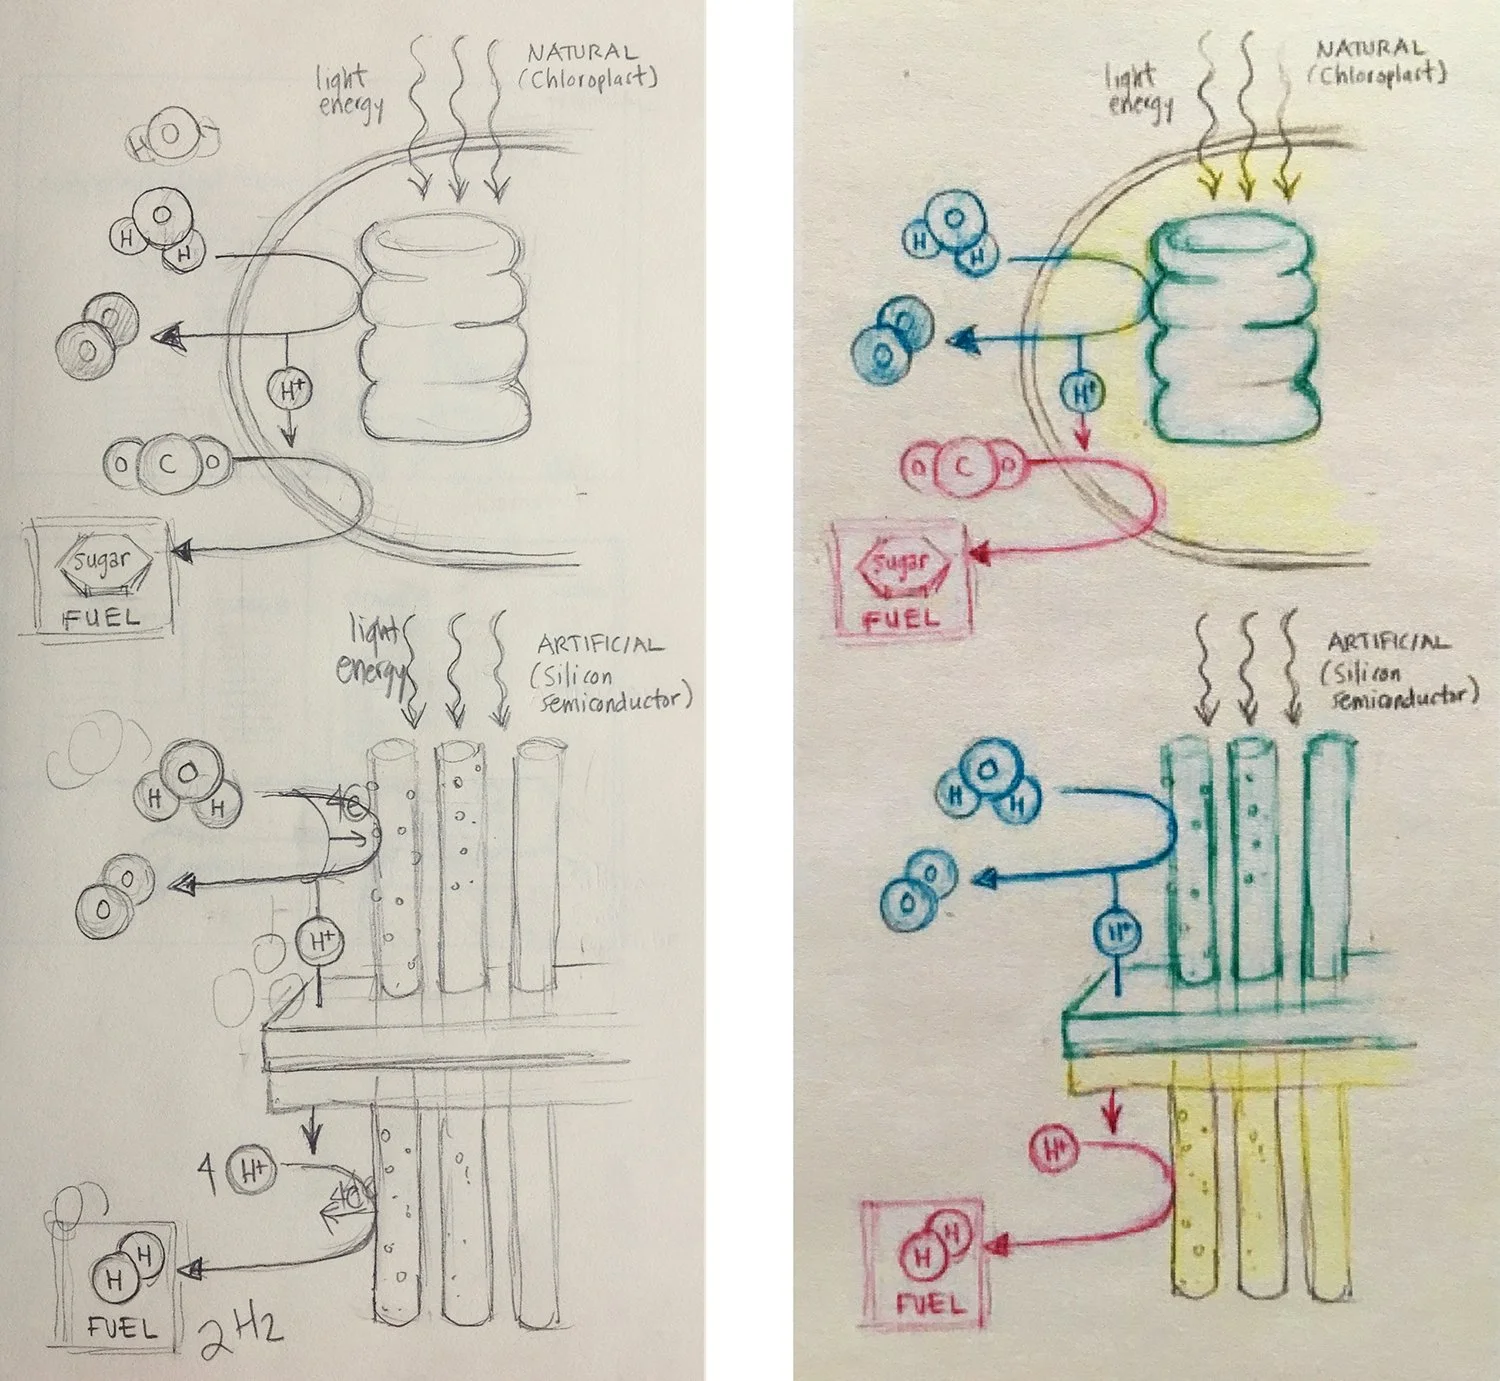 light
energy
NATURAL
(Chloroplast)
H
O
H
O
H
O
O
H+
O
C
O
Sugar
FUEL
light
energy
ARTIFICIAL
(Silicon
semiconductor)
O
H
H
4e
O
O
H+
4 H+
4e
H
H
FUEL
2H2
light
energy
NATURAL
(Chloroplast)
O
H
H
O
O
H+
O
C
O
Sugar
FUEL
ARTIFICIAL
(Silicon
semiconductor)
O
H
H
O
O
H+
H+
H
H
FUEL